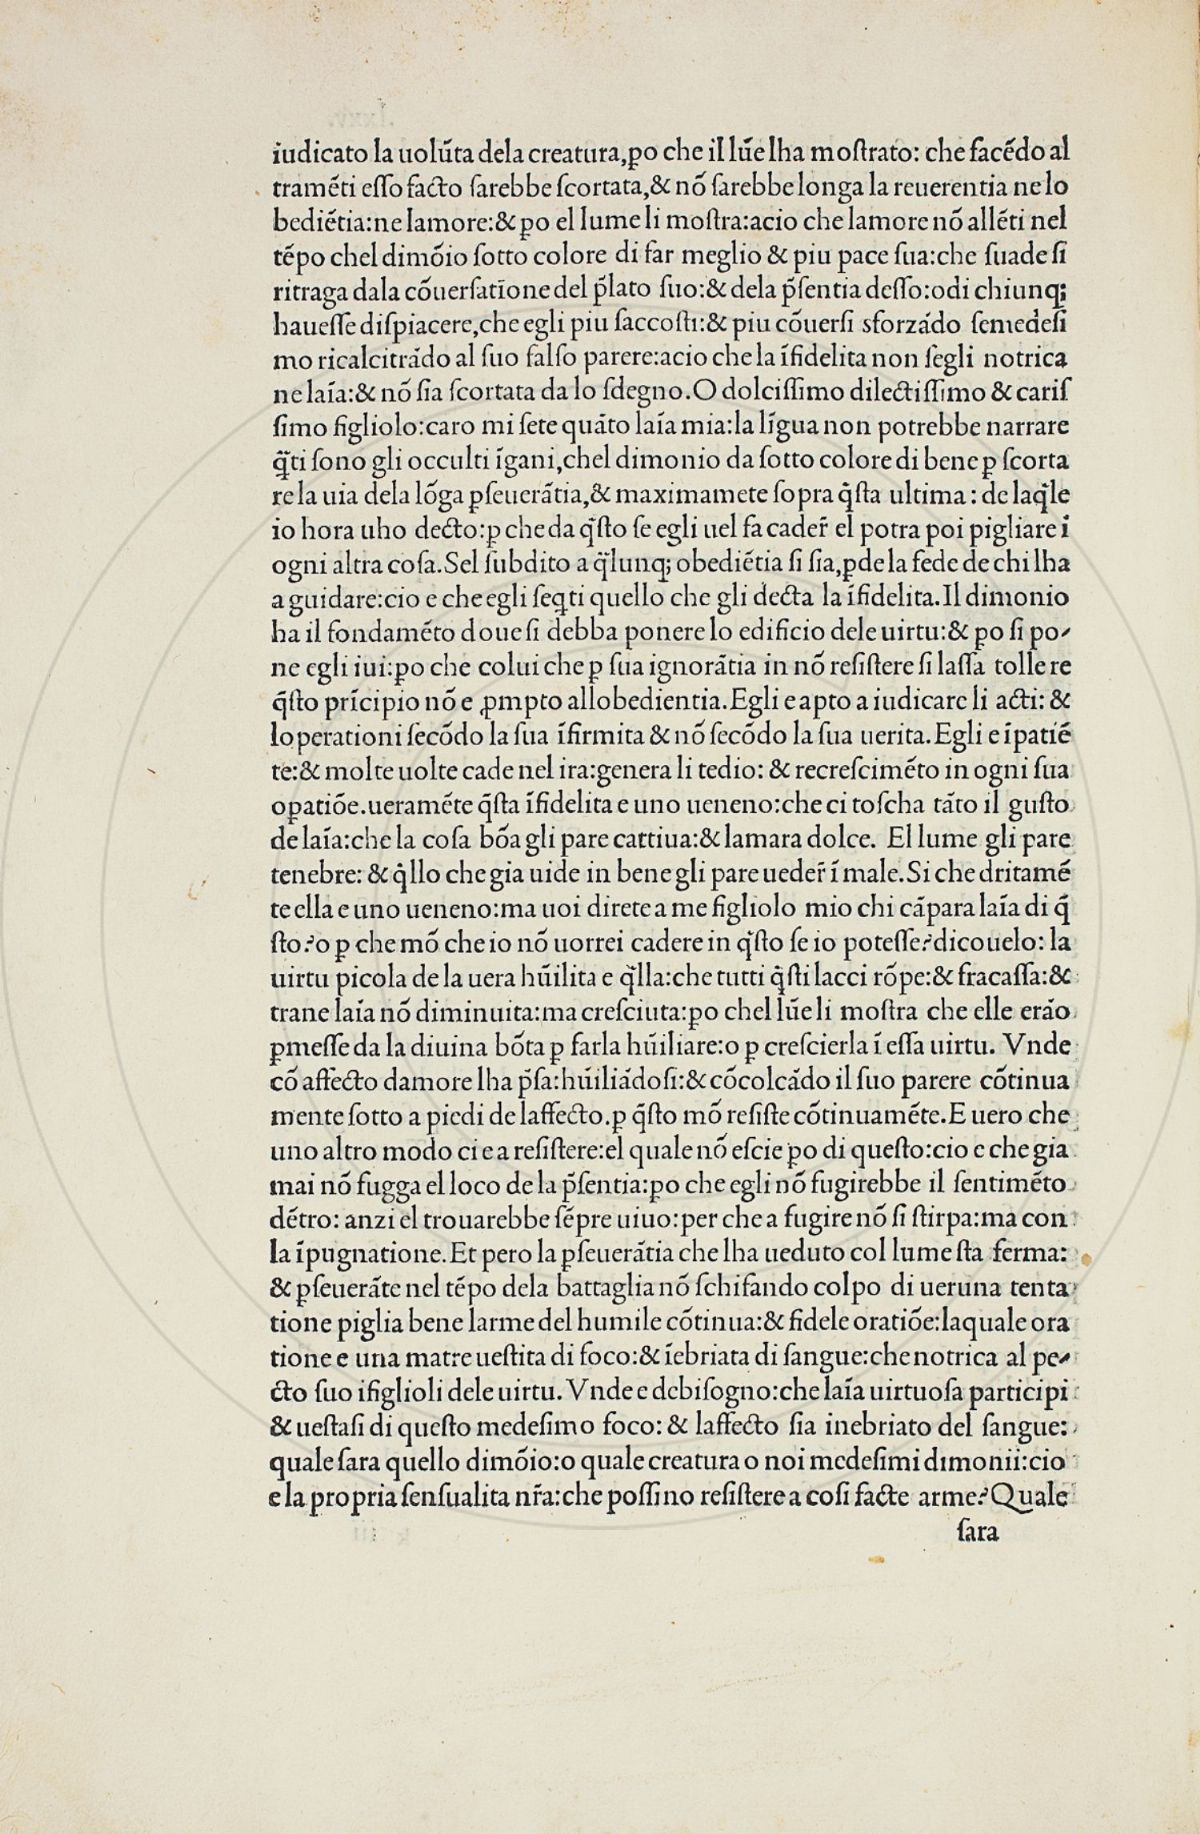 iudicato la uolũta dela creatura,ꝑo che il lũe lha moſtrato: che facẽdo al
tramẽti eſſo facto ſarebbe ſcortata,& nõ ſarebbe longa la reuerentia ne lo
bediẽtia:ne lamore:& ꝑo el lume li moſtra:acio che lamore nõ allẽti nel
tẽpo chel dimõio ſotto colore di far meglio & piu pace ſua:che ſuade ſi
ritraga dala cõuerſatione del p̃lato ſuo:& dela p̃ſentia deſſo:odi chiunq;
haueſſe diſpiacere,che egli piu ſaccoſti:& piu cõuerſi sforzãdo ſemedeſi
mo ricalcitrãdo al ſuo falſo parere:acio che la ĩfidelita non ſegli notrica
ne laĩa:& nõ ſia ſcortata da lo ſdegno.O dolciſſimo dilectiſſimo & cariſ
ſimo figliolo:caro mi ſete quãto laĩa mia:la lĩgua non potrebbe narrare
q̃ti ſono gli occulti ĩgani,chel dimonio da ſotto colore di bene ꝑ ſcorta
re la uia dela lõga ꝑſeuerãtia,& maximamete ſopra q̃ſta ultima: de laq̃le
io hora uho decto:ꝑ che da q̃ſto ſe egli uel fa cader̃ el potra poi pigliare ĩ
ogni altra coſa.Sel ſubdito a q̃lunq; obediẽtia ſi ſia,ꝑde la fede de chi lha
a guidare:cio e che egli ſeq̃ti quello che gli decta la ĩfidelita.Il dimonio
ha il fondamẽto doue ſi debba ponere lo edificio dele uirtu:& ꝑo ſi po-
ne egli iui:ꝑo che colui che ꝑ ſua ignorãtia in nõ reſiſtere ſi laſſa tollere
q̃ſto prĩcipio nõ e ꝓmpto allobedientia.Egli e apto a iudicare li acti: &
loperationi ſecõdo la ſua ĩfirmita & nõ ſecõdo la ſua uerita.Egli e ĩpatiẽ
te:& molte uolte cade nel ira:genera li tedio: & recreſcimẽto in ogni ſua
oꝑatiõe.ueramẽte q̃ſta ĩfidelita e uno ueneno:che ci toſcha tãto il guſto
de laĩa:che la coſa bõa gli pare cattiua:& lamara dolce. El lume gli pare
tenebre: & q̃llo che gia uide in bene gli pare ueder̃ ĩ male.Si che dritamẽ
te ella e uno ueneno:ma uoi direte a me figliolo mio chi cãpara laĩa di q̃
ſto?o ꝑ che mõ che io nõ uorrei cadere in q̃ſto ſe io poteſſe?dicouelo: la
uirtu picola de la uera hũilita e q̃lla:che tutti q̃ſti lacci rõpe:& fracaſſa:&
trane laĩa nõ diminuita:ma creſciuta:ꝑo chel lũe li moſtra che elle erão
ꝑmeſſe da la diuina bõta ꝑ farla hũiliare:o ꝑ creſcierla ĩ eſſa uirtu. Vnde
cõ affecto damore lha p̃ſa:hũiliãdoſi:& cõcolcãdo il ſuo parere cõtinua
mente ſotto a piedi de laffecto.ꝑ q̃ſto mõ reſiſte cõtinuamẽte.E uero che
uno altro modo ci e a reſiſtere:el quale nõ eſcie ꝑo di queſto:cio e che gia
mai nõ fugga el loco de la p̃ſentia:ꝑo che egli nõ fugirebbe il ſentimẽto
dẽtro: anzi el trouarebbe ſẽpre uiuo:per che a fugire nõ ſi ſtirpa:ma con
la ĩpugnatione.Et pero la ꝑſeuerãtia che lha ueduto col lume ſta ferma:
& ꝑſeuerãte nel tẽpo dela battaglia nõ ſchifando colpo di ueruna tenta
tione piglia bene larme del humile cõtinua:& fidele oratiõe:laquale ora
tione e una matre ueſtita di foco:& ĩebriata di ſangue:che notrica al pe-
cto ſuo ifiglioli dele uirtu. Vnde e debiſogno:che laĩa uirtuoſa participi
& ueſtaſi di queſto medeſimo foco: & laffecto ſia inebriato del ſangue:
quale ſara quello dimõio:o quale creatura o noi medeſimi dimonii:cio
e la propria ſenſualita nr̃a:che poſſino reſiſtere a coſi facte arme?Quale
ſara